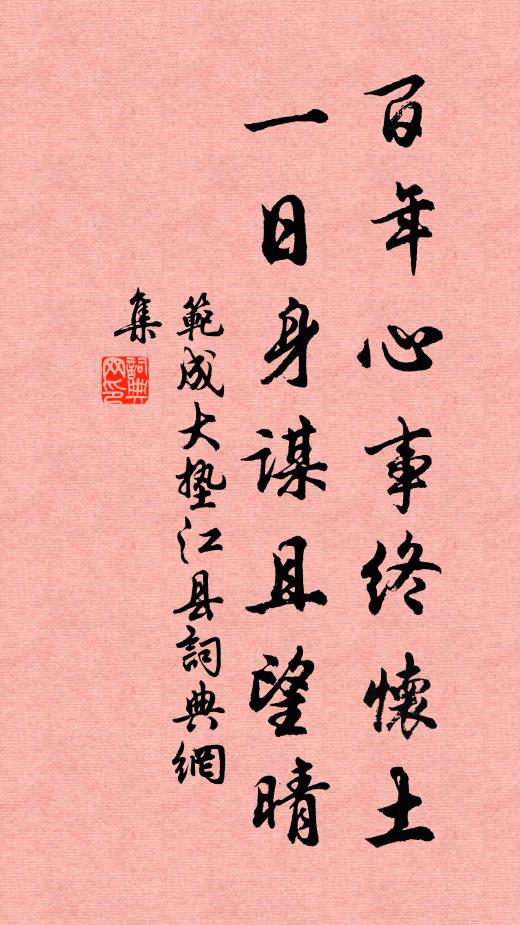 百年心事终懷土
一日身謀且望晴
範成大墊江县詞典網
集
詞典网印